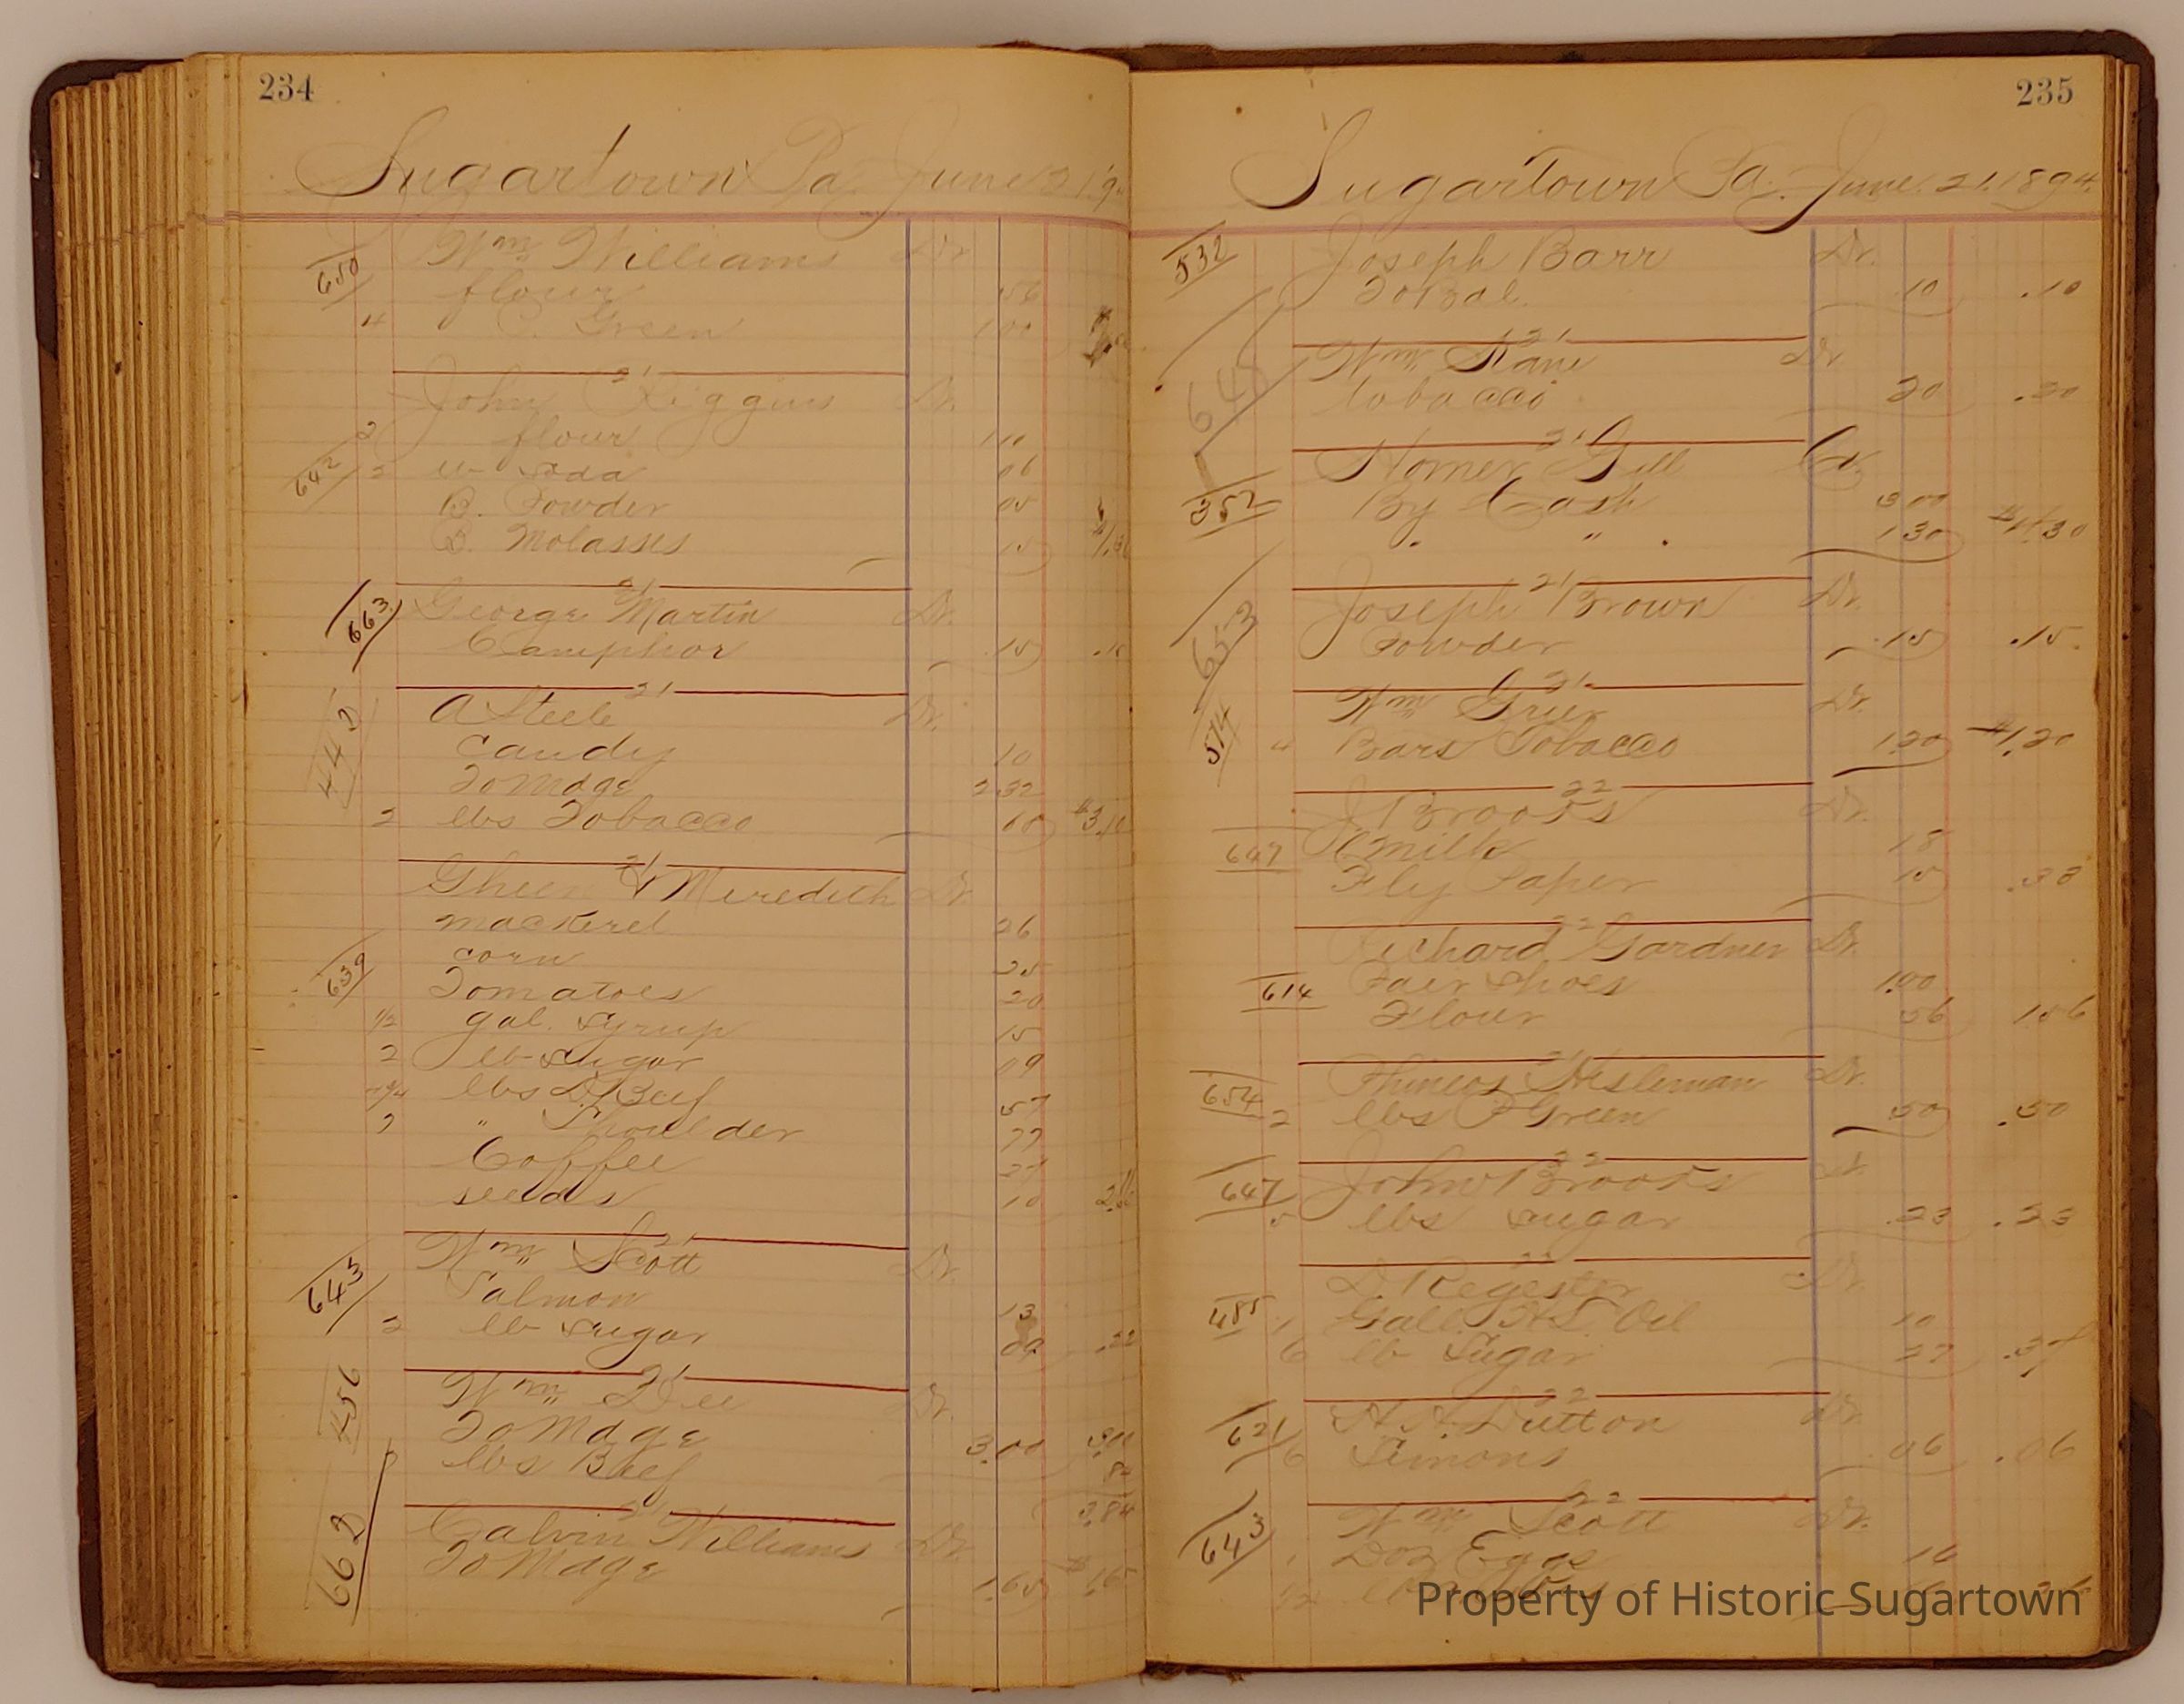 234
Sugartown Pa. June 21, 94
650 Wm Williams Dr.
flour 56
4 C. Green 100
21
John Riggins Dr.
2 flour 1 10
642 2 lb Soda 06
B. Powder 05
B. Molasses 15
21
663 George Martin Dr.
Camphor .15 .15
21
442 A Steele Dr.
Candy 10
To Mdge 2.32
2 lbs Tobacco 68 $3.10
21
Gheen & Meredith Dr.
mackerel 26
corn 25
639 Tomatoes 20
1/2 gal. Syrup 15
2 lb Sugar 09
lbs D. Beef 57
7 " Shoulder 77
Coffee 27
seeds 10
21
643 Wm Scott Dr.
Salmon 13
2 lb Sugar 09 .22
21
456 Wm Dee Dr.
To Mdge 3.00 3.00
lbs Beef 84
3.84
21
662 Calvin Williams Dr.
To Mdge 1.65 $1.65
235
Sugartown Pa. June. 21. 1894.
532 Joseph Barr Dr.
To Bal. .10 .10
21
648 Wm Kane Dr.
tobacco 20 .20
21
Homer Gill Cr
352 By Cash 3 00
" " 1 30 $4.30
21
653 Joseph Brown Dr.
Powder .15 .15.
21
574 Wm Grier Dr.
4 Bars Tobacco 1.20 $1.20
22
J Brooks Dr.
647 C Milk 18
Fly Paper 15 .33
22
Richard Gardner Dr.
614 Pair Shoes 1.00
Flour 56 1 56
21
654 Phineas Hesleman Dr.
2 lbs P Green 50 .50
22
647 John Brooks Dr
5 lbs Sugar .23 .23
22
D. Regester Dr.
485 1 Gall. H.L. Oil 10
6 lb Sugar 27 .37
22
621 H. A. Dutton Dr.
6 Lemons .06 .06
22
643 Wm Scott Dr.
1 Doz Eggs 16
1/2
Property of Historic Sugartown